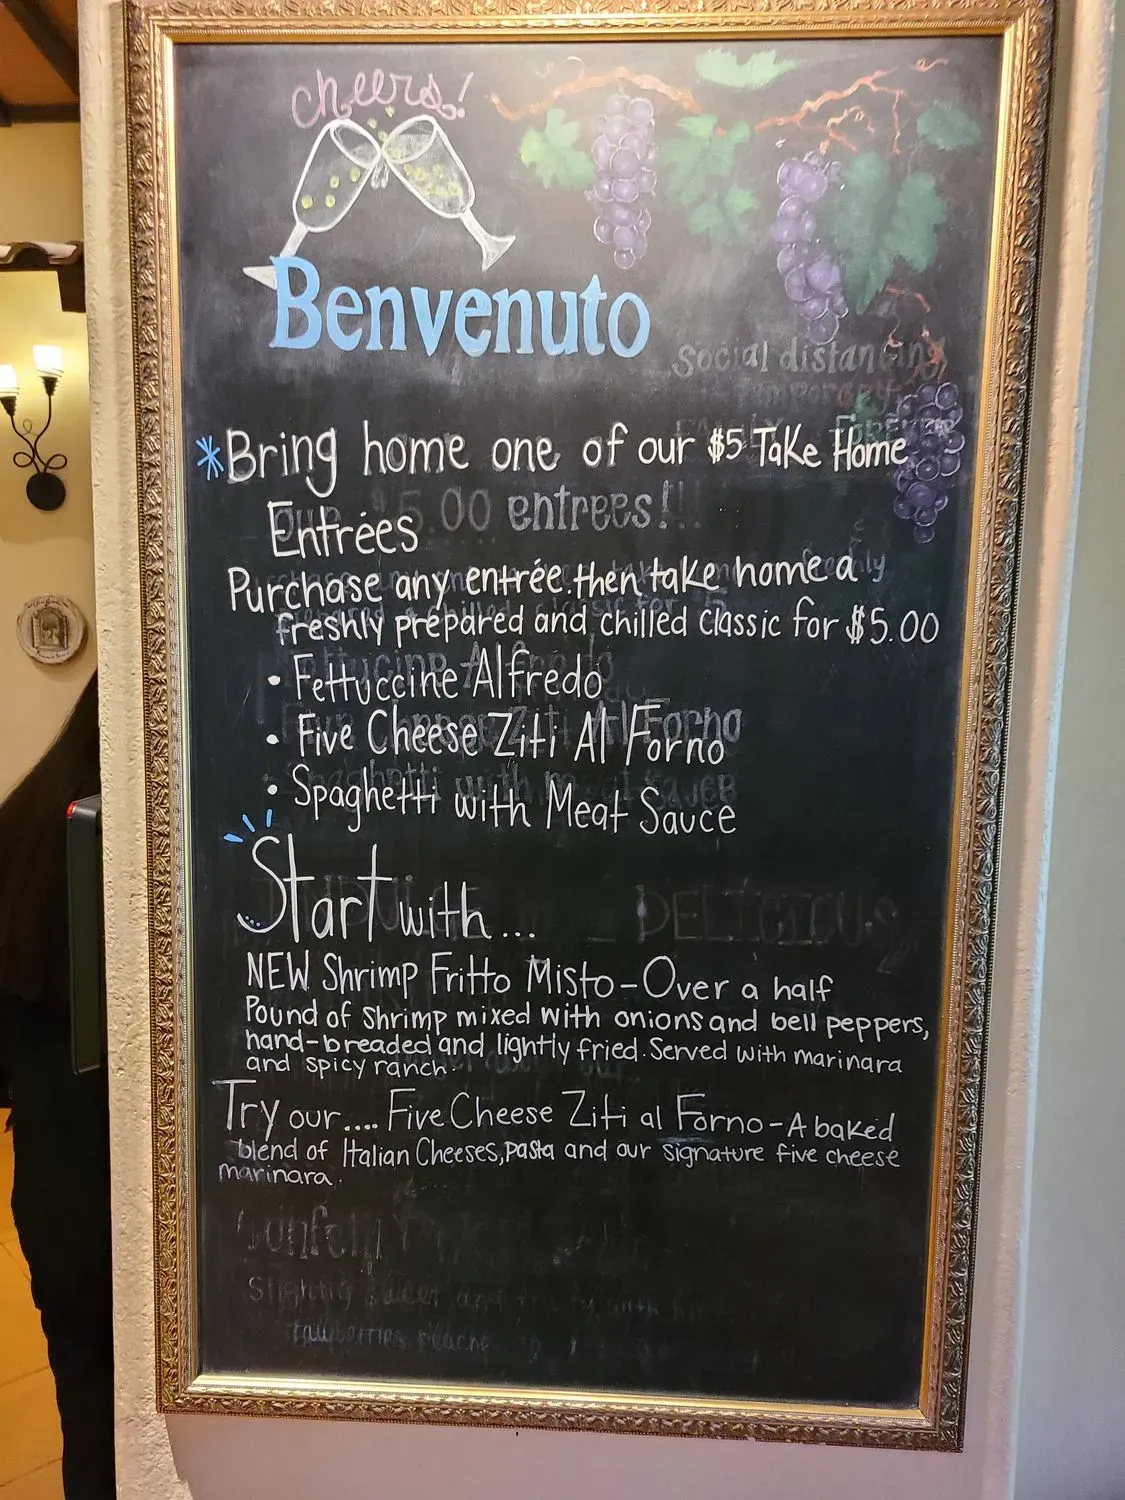 cheers!
Benvenuto
Social distancing
*Bring home one of our $5 Take Home
Entrées
entrees!!!
Purchase any entrée.then take home a
freshly prepared and chilled classic for $5.00
• Fettuccine Alfredo
• Five Cheese Ziti Al Forno
• Spaghetti with Meat Sauce
Start with...
DELICIOUS
NEW Shrimp Fritto Misto-Over a half
Pound of Shrimp mixed with onions and bell peppers,
hand-breaded and lightly fried. Served with marinara
and spicy ranch.
Try our.... Five Cheese Ziti al Forno-A baked
blend of Italian Cheeses, pasta and our signature five cheese
marinara.